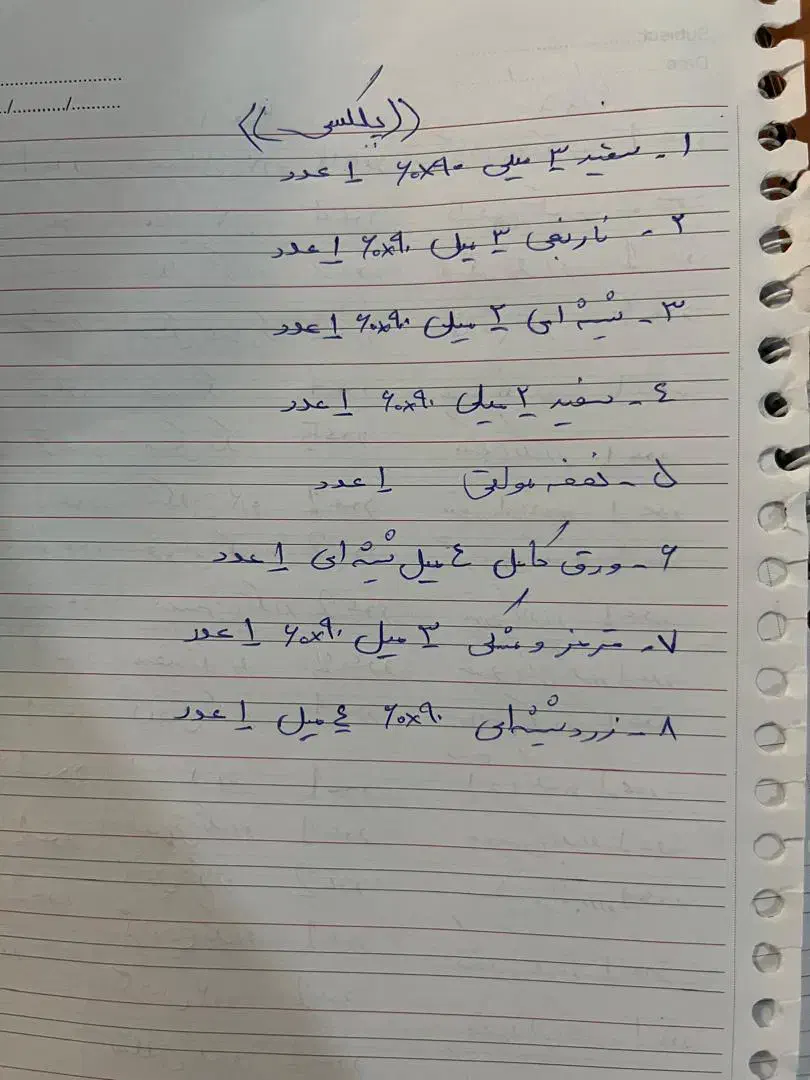 ((پلکسی))
۱- سفید ۳ میلی ۶۰x۹۰ ۱ عدد
۲- نارنجی ۳ میل ۶۰x۹۰ ۱ عدد
۳- شیشه ای ۲ میلی ۶۰x۹۰ ۱ عدد
٤- سفید ۲ میلی ۶۰x۹۰ ۱ عدد
۵- مولتی ۱ عدد
۶- ورق کامل ٤ میل شیشه ای ۱ عدد
۷- قرمز و مشکی ۳ میل ۶۰x۹۰ ۱ عدد
۸- زرد شیشه ای ۶۰x۹۰ ٤ میل ۱ عدد